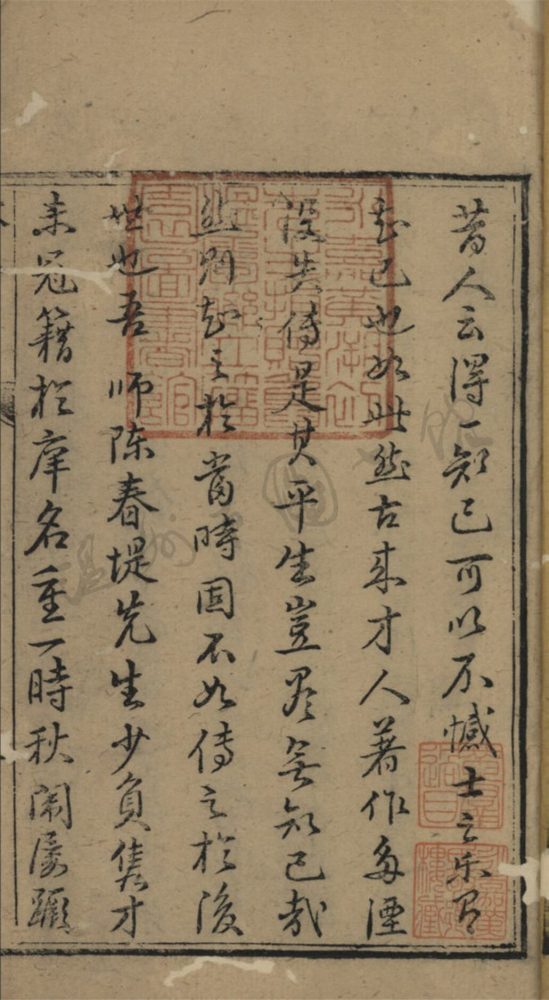 昔人云得一知己可以不憾士之樂有
知己也如此然古來才人著作多湮
沒失傳是其平生豈盡無知己哉
然則知之於當時固不如傳之於後
世也吾師陳春堤先生少負雋才
未冠籍於庠名重一時秋闈屢躓